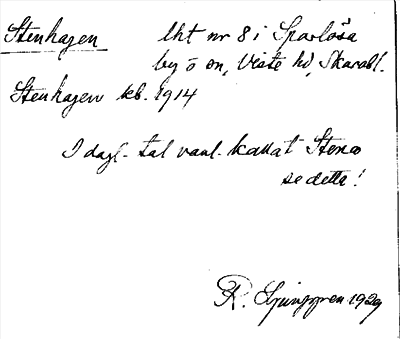 Stenhagen lht nr 8 i Sparlösa
by o sn, Viste hd, Skarabl.
Stenhagen kb. 1914
I dagl. tal vanl. kallat Stena
se detta!
R. Ljunggren 1929